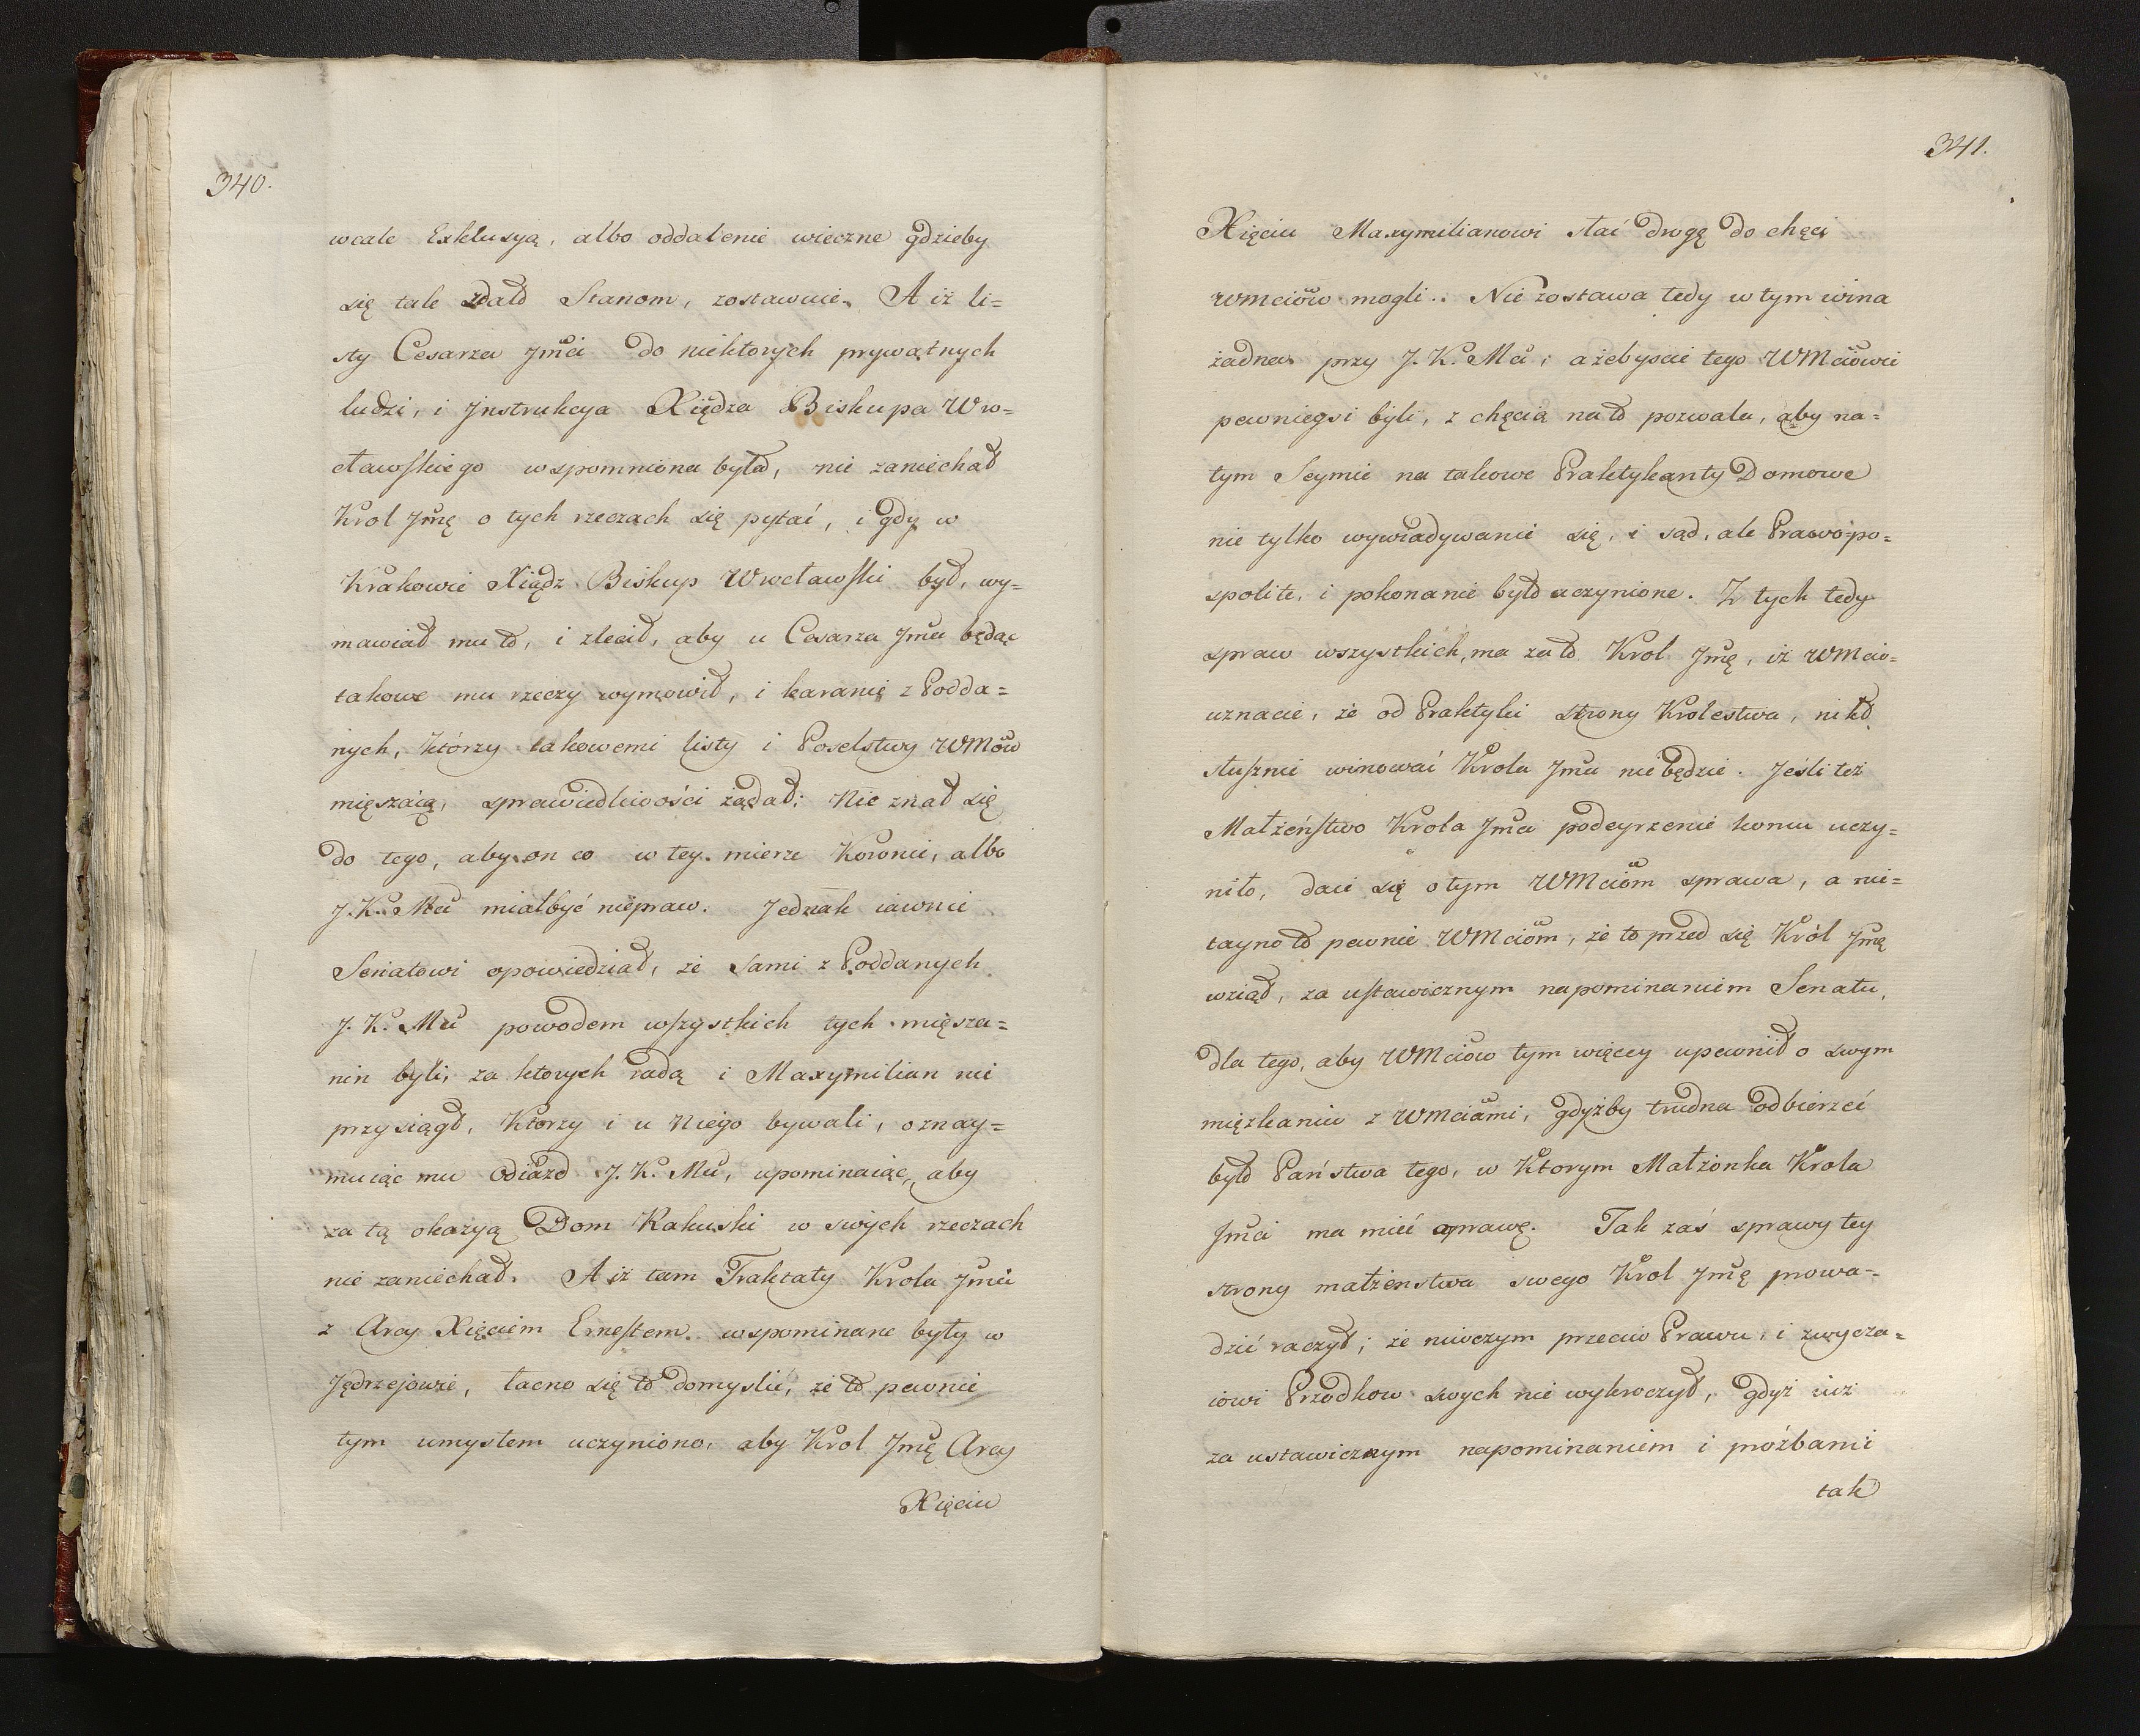 340.
wcale Exklusyą, albo oddalenie wieczne gdzieby
się tale zdało Stanom, zostawuie. A iż li=
sty Cesarza Jmci do niektorych prywatnych
ludzi, i Jnstrukcya Xiędza Biskupa Wro=
cławskiego wspomniona była, nie zaniechał
Krol Jmę o tych rzeczach się pytać, i gdy w
Krakowie Xiądz Biskup Wrocławski był, wy=
mawiał mu to, i zlecił, aby u Cesarza Jmci będąc
takowe mu rzeczy wymowił, i karanie z Podda=
nych, którzy takowemi listy i Poselstwy WMów
mięszaią, sprawiedliwości żądał: Nie znał się
do tego, aby on co w tey mierze Koronie, albo
J. K. Mci miałbyć niepraw. Jednak iawnie
Senatowi opowiedział, że sami z Poddanych
J. K. Mci powodem wszystkich tych mięsza=
nin byli, za ktorych radą i Maxymilian nie
przysiągł, Ktorzy i u Niego bywali, oznay=
muiąc mu Odiazd J. K. Mci, upominaiąc, aby
za tą okazyą Dom Rakuski w swych rzeczach
nie zaniechał. A iż tam Traktaty Krola Jmci
z Arcy Xięciem Ernestem wspominane były w
Jędrzejowie, łacno się to domyslić, że to pewnie
tym umysłem uczyniono, aby Krol Jmę Arcy
Xięciu
341.
Xięciu Maxymilianowi słać drogę do chęci
WMciów mogli. Nie zostawa tedy w tym wina
żadna przy J. K. Mci, a żebyscie tego WMciowie
pewniegsi byli, z chęcią na to pozwala, aby na=
tym Seymie na takowe Praktykanty Domowe
nie tylko wywiadywanie się, i sąd, ale Prawo po=
spolite, i pokonanie było uczynione. Z tych tedy
spraw wszystkich, ma za to Krol Jmę, iż WMcio=
uznacie, że od Praktyki strony Krolestwa, nikt
słusznie winować Krola Jmci nie będzie. Jeśli też
Małżeństwo Krola Jmci podeyrzenie komu uczy=
niło, daie się o tym WMciom sprawa, a nie=
tayno to pewnie WMciom, że to przed się Król Jmę
wziął, za ustawicznym napominaniem Senatu,
dla tego, aby WMciow tym więcey upewnił o swym
mięzkaniu z WMciami, gdyżby trudna odbierzeć
było Państwa tego, w Ktorym Małżonka Krola
Jmci ma mieć oprawę. Tak zaś sprawy tey
strony małżenstwa swego Krol Jmę prowa=
dzić raczył; że niwczym przeciw Prawu, i zwycza=
iowi Przodkow swych nie wykroczył, gdyż iuż
za ustawicznym napominaniem i proźbami
tak